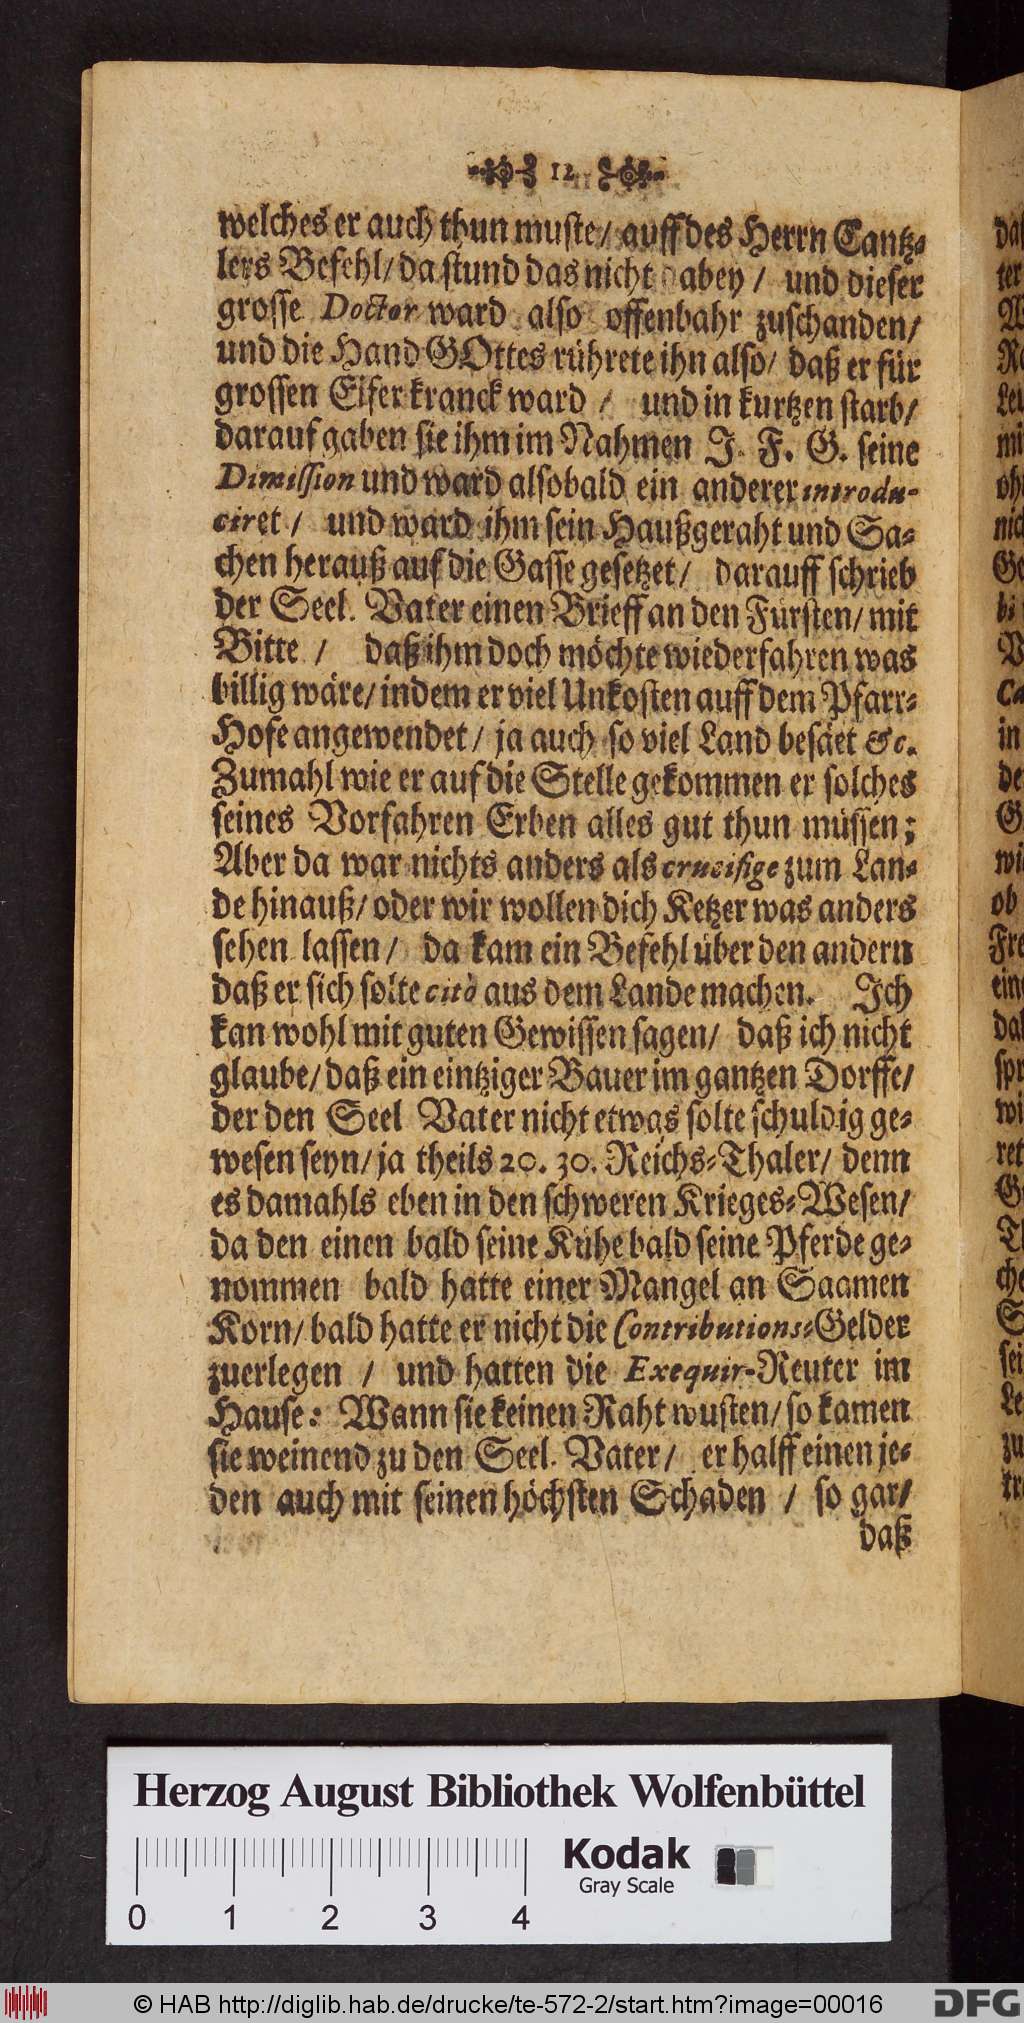 12
welches er auch thun muste/ auff des Herrn Cantz-
lers Befehl/ da stund das nicht dabey/ und dieser
grosse Doctor ward also offenbahr zuschanden/
und die Hand GOttes rührete ihn also/ daß er für
grossen Eifer kranck ward / und in kurtzen starb/
darauf gaben sie ihm im Nahmen J. F. G. seine
Dimission und ward alsobald ein anderer introdu-
ciret / und ward ihm sein Haußgeraht und Sa-
chen herauß auf die Gasse gesetzet/ darauff schrieb
der Seel. Vater einen Brieff an den Fürsten/ mit
Bitte / daß ihm doch möchte wiederfahren was
billig wäre/ indem er viel Unkosten auff dem Pfarr-
Hofe angewendet/ ja auch so viel Land besäet &c.
Zumahl wie er auf die Stelle gekommen er solches
seines Vorfahren Erben alles gut thun müssen;
Aber da war nichts anders als crucifige zum Lan-
de hinauß/ oder wir wollen dich Ketzer was anders
sehen lassen/ da kam ein Befehl über den andern
daß er sich solte citò aus dem Lande machen. Ich
kan wohl mit guten Gewissen sagen/ daß ich nicht
glaube/ daß ein eintziger Bauer im gantzen Dorffe/
der den Seel Vater nicht etwas solte schuldig ge-
wesen seyn/ ja theils 20. 30. Reichs-Thaler/ denn
es damahls eben in den schweren Krieges-Wesen/
da den einen bald seine Kühe bald seine Pferde ge-
nommen bald hatte einer Mangel an Saamen
Korn/ bald hatte er nicht die Contributions-Gelder
zuerlegen / und hatten die Exequir-Reuter im
Hause: Wann sie keinen Raht wusten/ so kamen
sie weinend zu den Seel. Vater/ er halff einen je-
den auch mit seinen höchsten Schaden / so gar/
daß
Herzog August Bibliothek Wolfenbüttel
0 1 2 3 4
Kodak
Gray Scale
© HAB http://diglib.hab.de/drucke/te-572-2/start.htm?image=00016
DFG